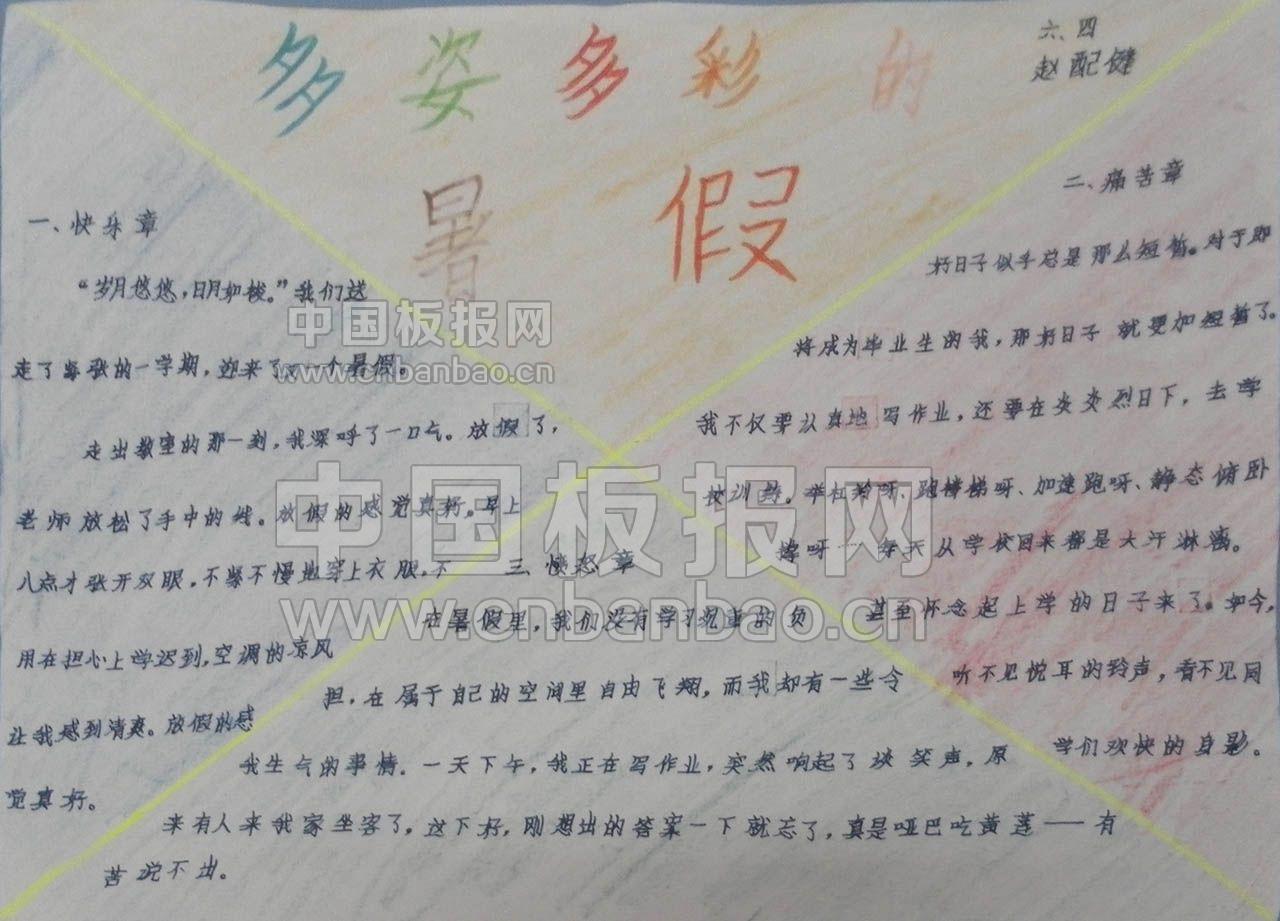 多姿多彩的
暑假
六、四
赵配健
一、快乐章
“岁月悠悠，日月如梭。”我们送
走了紧张的一学期，迎来了又一个暑假。
走出教室的那一刻，我深呼了一口气。放假了，
老师放松了手中的线。放假的感觉真好。早上
八点才张开双眼，不紧不慢地穿上衣服，不
用在担心上学迟到，空调的凉风
让我感到清爽。放假的感
觉真好。
二、痛苦章
好日子似乎总是那么短暂。对于即
将成为毕业生的我，那好日子就更加短暂了。
我不仅要认真地写作业，还要在炎炎烈日下，去学
校训练。举杠铃呀、跑楼梯呀、加速跑呀、静态俯卧
撑呀一每天从学校回来都是大汗淋漓。
甚至怀念起上学的日子来了。如今，
听不见悦耳的铃声，看不见同
学们欢快的身影。
三、愤怒章
在暑假里，我们没有学习沉重的负
担，在属于自己的空间里自由飞翔，而我却有一些令
我生气的事情。一天下午，我正在写作业，突然响起了谈笑声，原
来有人来我家坐客了，这下好，刚想出的答案一下就忘了，真是哑巴吃黄莲——有
苦说不出。
中国板报网
www.cnbanbao.cn
中国板报网
www.cnbanbao.cn